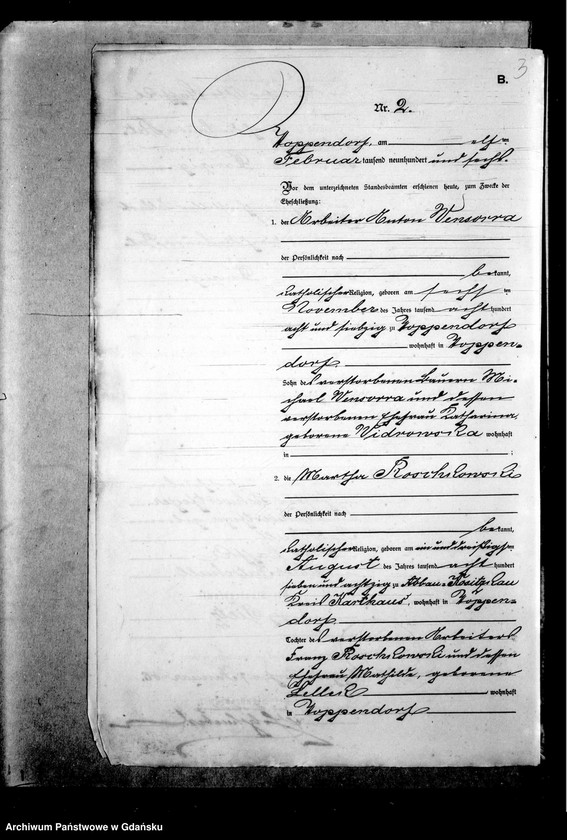 3
B.
Nr. 2.
Hoppendorf, am elf ten
Februar tausend neunhundert und sechs.
Vor dem unterzeichneten Standesbeamten erschienen heute, zum Zwecke der
Eheschließung:
1. der Arbeiter Anton Wensorra
der Persönlichkeit nach
bekannt,
katholischer Religion, geboren am sechsten
November des Jahres tausend acht hundert
acht und siebzig zu Hoppendorf
wohnhaft in Hoppen-
dorf
Sohn des verstorbenen Bauern Mi-
chael Wensorra und dessen
verstorbenen Ehefrau Katharina,
geborene Vidrowska wohnhaft
in ;
2. die Martha Roschkowski
der Persönlichkeit nach
bekannt,
katholischer Religion, geboren am ein und dreißigsten
August des Jahres tausend acht hundert
sieben und achtzig zu Abbau
Kreis Karthaus, wohnhaft in Hoppen-
dorf
Tochter des verstorbenen Arbeiters
Franz Roschkowski und dessen
Ehefrau Mathilde, geborene
wohnhaft
in Hoppendorf
Archiwum Państwowe w Gdańsku